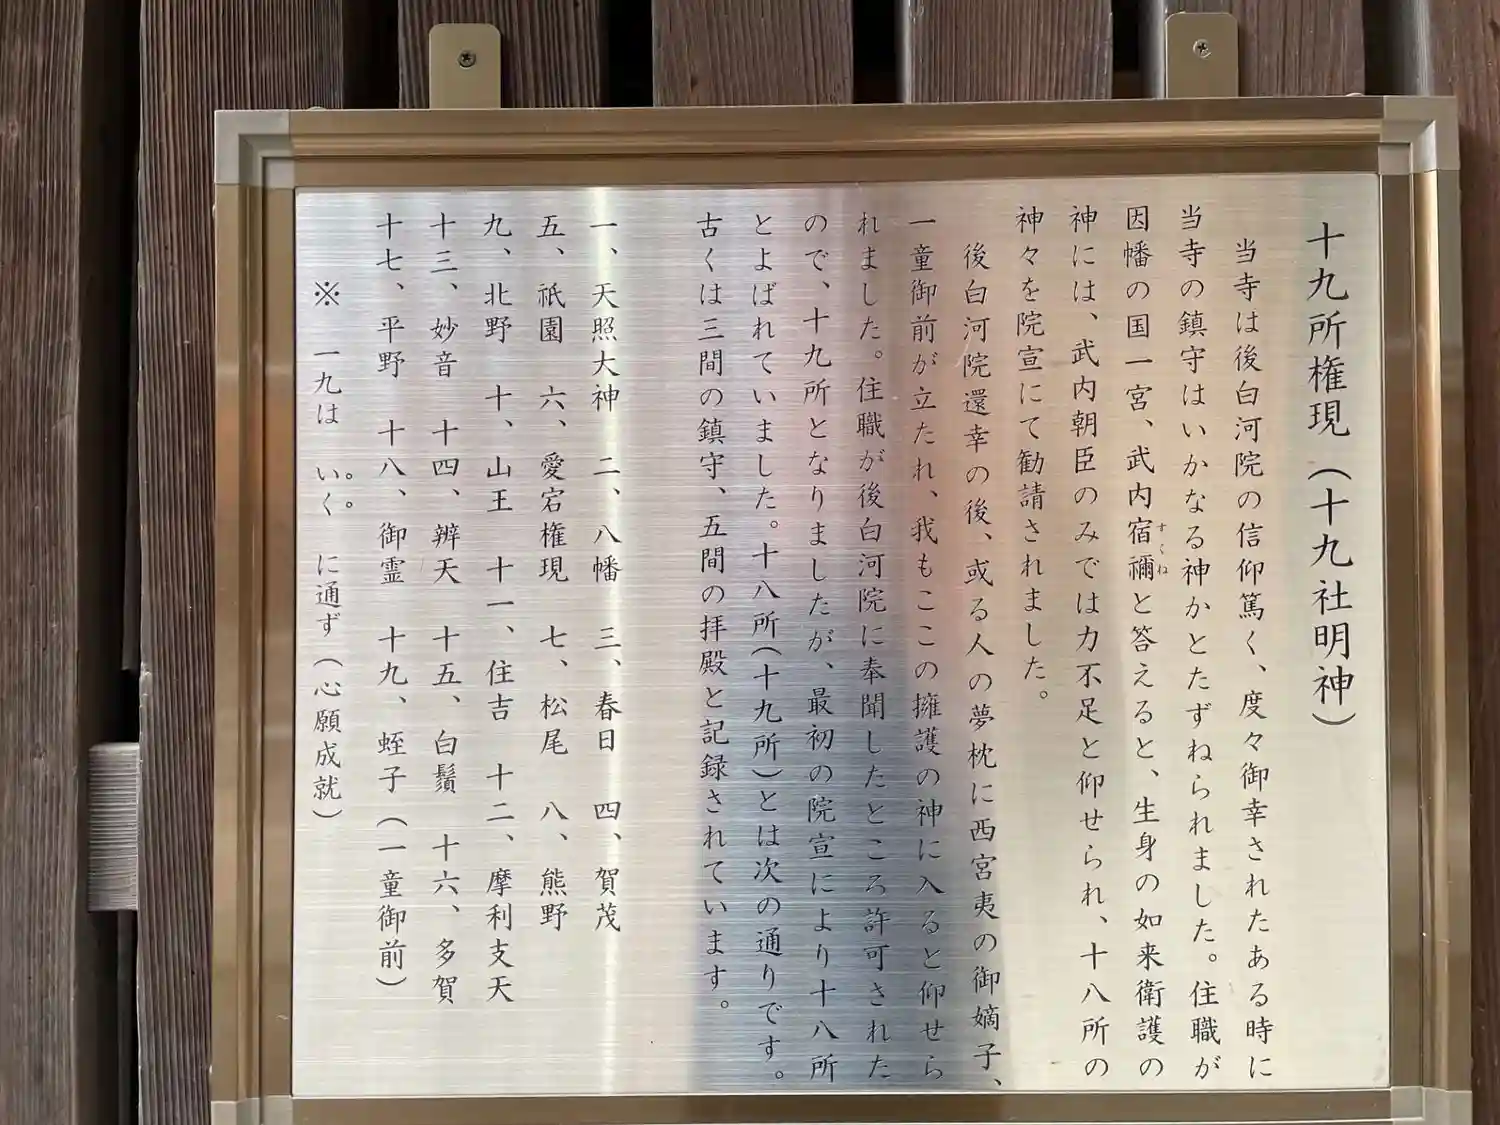 十九所権現（十九社明神）
当寺は後白河院の信仰篤く、度々御幸されたある時に
当寺の鎮守はいかなる神かとたずねられました。住職が
因幡の国一宮、武内宿禰と答えると、生身の如来衛護の
すくね
神には、武内朝臣のみでは力不足と仰せられ、十八所の
神々を院宣にて勧請されました。
後白河院還幸の後、或る人の夢枕に西宮夷の御嫡子、
一童御前が立たれ、我もここの擁護の神に入ると仰せら
れました。住職が後白河院に奉聞したところ許可された
ので、十九所となりましたが、最初の院宣により十八所
とよばれていました。十八所（十九所）とは次の通りです。
古くは三間の鎮守、五間の拝殿と記録されています。
一、天照大神 二、八幡 三、春日 四、賀茂
五、祇園 六、愛宕権現 七、松尾 八、熊野
九、北野 十、山王 十一、住吉 十二、摩利支天
十三、妙音 十四、辨天 十五、白鬚 十六、多賀
十七、平野 十八、御霊 十九、蛭子（一童御前）
※ 一九は い。く。 に通ず（心願成就）